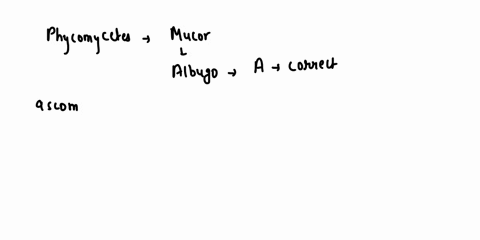 Phycomycetes → Mucor
↳
Albugo → A → correct
ascom